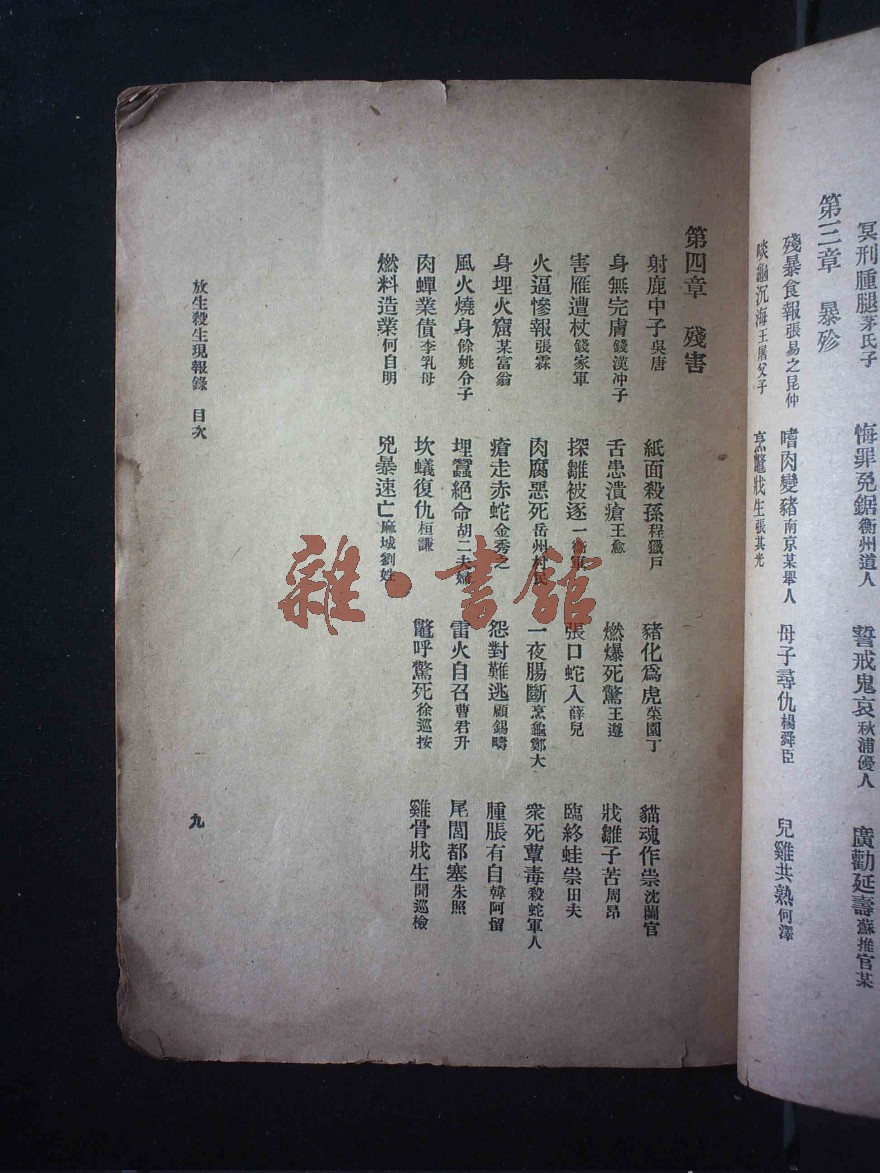 冥刑腫腿茅氏子　悔罪免鋸衡州道人　誓戒鬼哀秋浦優人　廣勸延壽蘇推官某
第三章　暴殄
殘暴食報張易之昆仲　嗜肉變豬南京某舉人　母子尋仇楊舜臣　兒雞共熟何澤
啖龜沉海王屠父子　烹鼈戕生張其光
第四章　殘害
射鹿中子吳唐　紙面殺孫程獵戶　豬化爲虎菜園丁　貓魂作祟沈蘭官
身無完膚錢漢冲子　舌患潰瘡王愈　燃爆死驚王遵　戕雛子苦周昂
害雁遭杖錢家軍　探雛被逐一衛軍　張口蛇入薛兒　臨終蛙祟田夫
火逼慘報張霖　肉腐惡死岳州村民　一夜腸斷烹龜鄭大　衆死蕈毒殺蛇軍人
身埋火窟某富翁　瘡走赤蛇金秀之　怨對難逃顧錫疇　腫脹有自韓阿留
風火燒身徐姚令子　埋蠶絕命胡二夫婦　雷火自召曹君升　尾閭都塞朱照
肉蟬業債李乳母　坎蟻復仇桓謙　鼈呼驚死徐巡按　雞骨戕生聞巡檢
燃料造業何自明　兇暴速亡麻城劉姓
放生殺生現報錄　目次
九
雜·書館